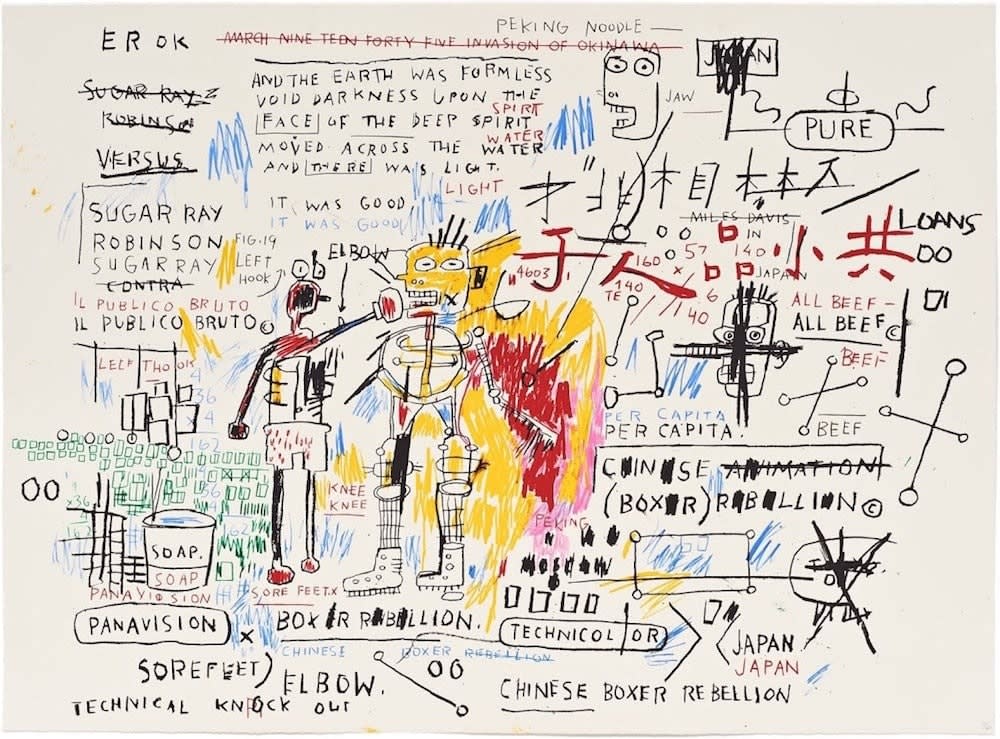 PEKING NOODLE
EROK
MARCH NINE TEEN FORTY FIVE INVASION OF OKINAWA
JAPAN
AND THE EARTH WAS FORMLESS
VOID DARKNESS UPON THE
SPIRIT
FACE OF THE DEEP SPIRIT
WATER
MOVED ACROSS THE WATER
AND THERE WAS LIGHT.
LIGHT
JAW
PURE
SUGAR RAY
ROBINSON
VERSUS
IT WAS GOOD
IT WAS GOOD
SUGAR RAY
ROBINSON
SUGAR RAY
CONTRA
IL PUBLICO BRUTO
IL PUBLICO BRUTO©
FIG.19
LEFT
HOOK
ELBOW
MILES DAVIS
IN
57
140
160
x
JAPAN
人品小共
4603.
140
TE
6
40
LOANS
OO
ALL BEEF-
ALL BEEF
BEEF
BEEF
LELF THOOK
4
36
x 4
162
PER CAPITA
PER CAPITA.
CHINESE ANIMATION
(BOXER) REBELLION©
OO
x36
KNEE
KNEE
PEKING
MOSCOW
SOAP.
SOAP
PANAVISION
PANAVISION
x
SORE FEET.x
BOXER REBELLION.
CHINESE BOXER REBELLION
TECHNICOLOR
JAPAN
JAPAN
SOREFEET)
ELBOW.
OO
TECHNICAL KNOCK OUT
CHINESE BOXER REBELLION